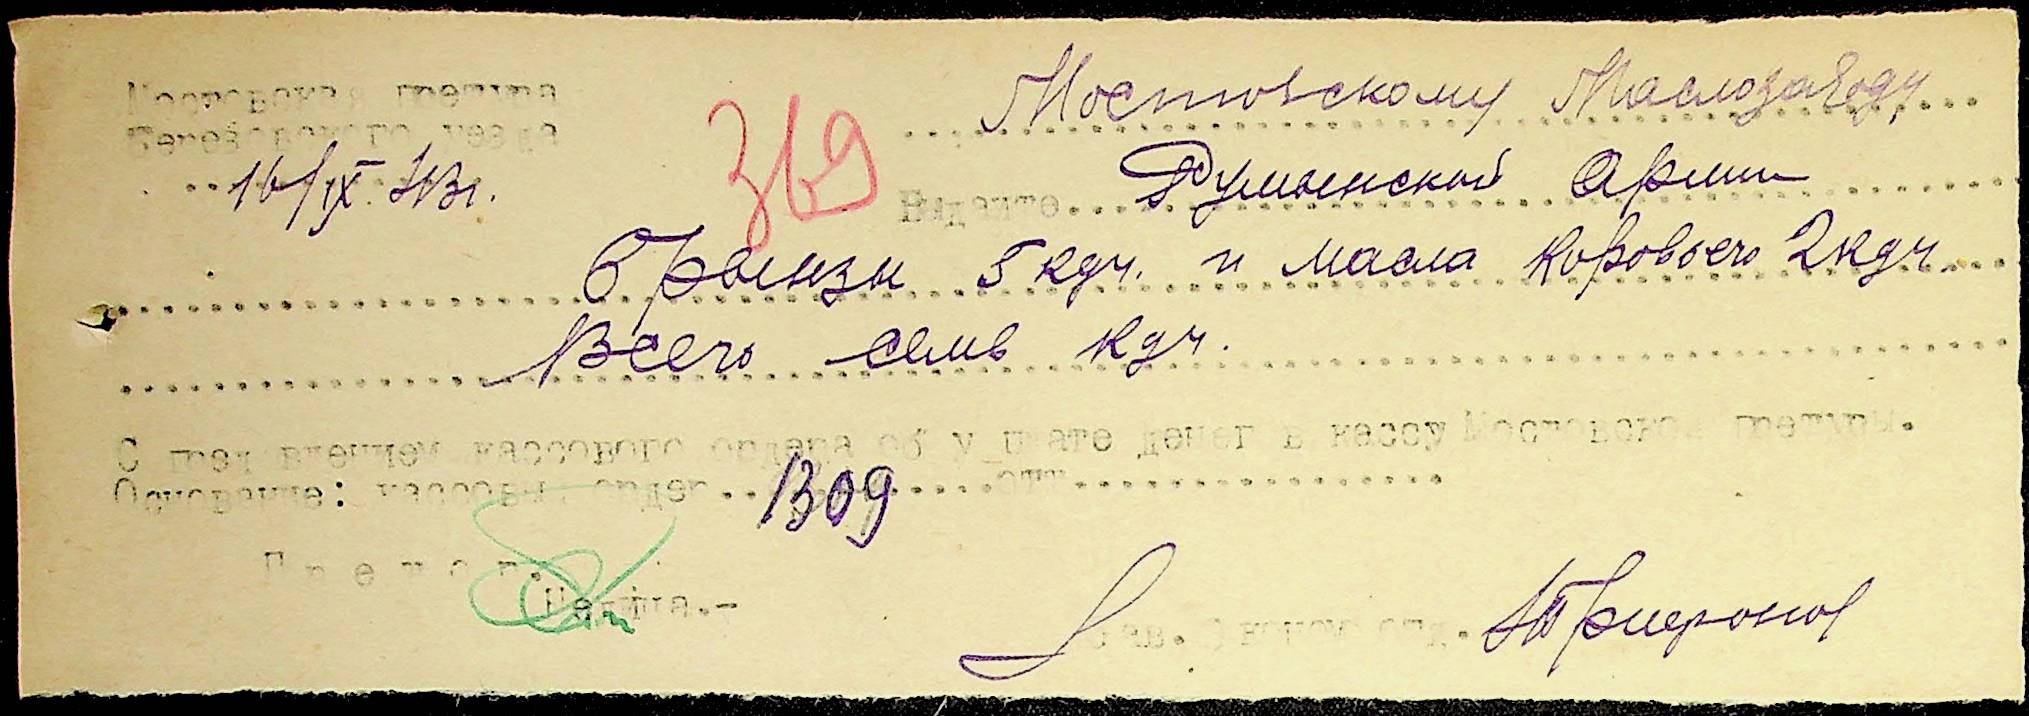 Мостовская претура
Березовского уезда
16/IX 43г.
369
Мостовскому Маслозаводу
Выдайте Румынской Армии
Брынзы 5 кгр. и масла коровьего 2 кгр.
Всего семь кгр.
С пред'явлением кассового ордера об уплате денег в кассу Мостовской претуры.
Основание: кассовый ордер 1309 от
Претор.
Зав. отд. Трифонов